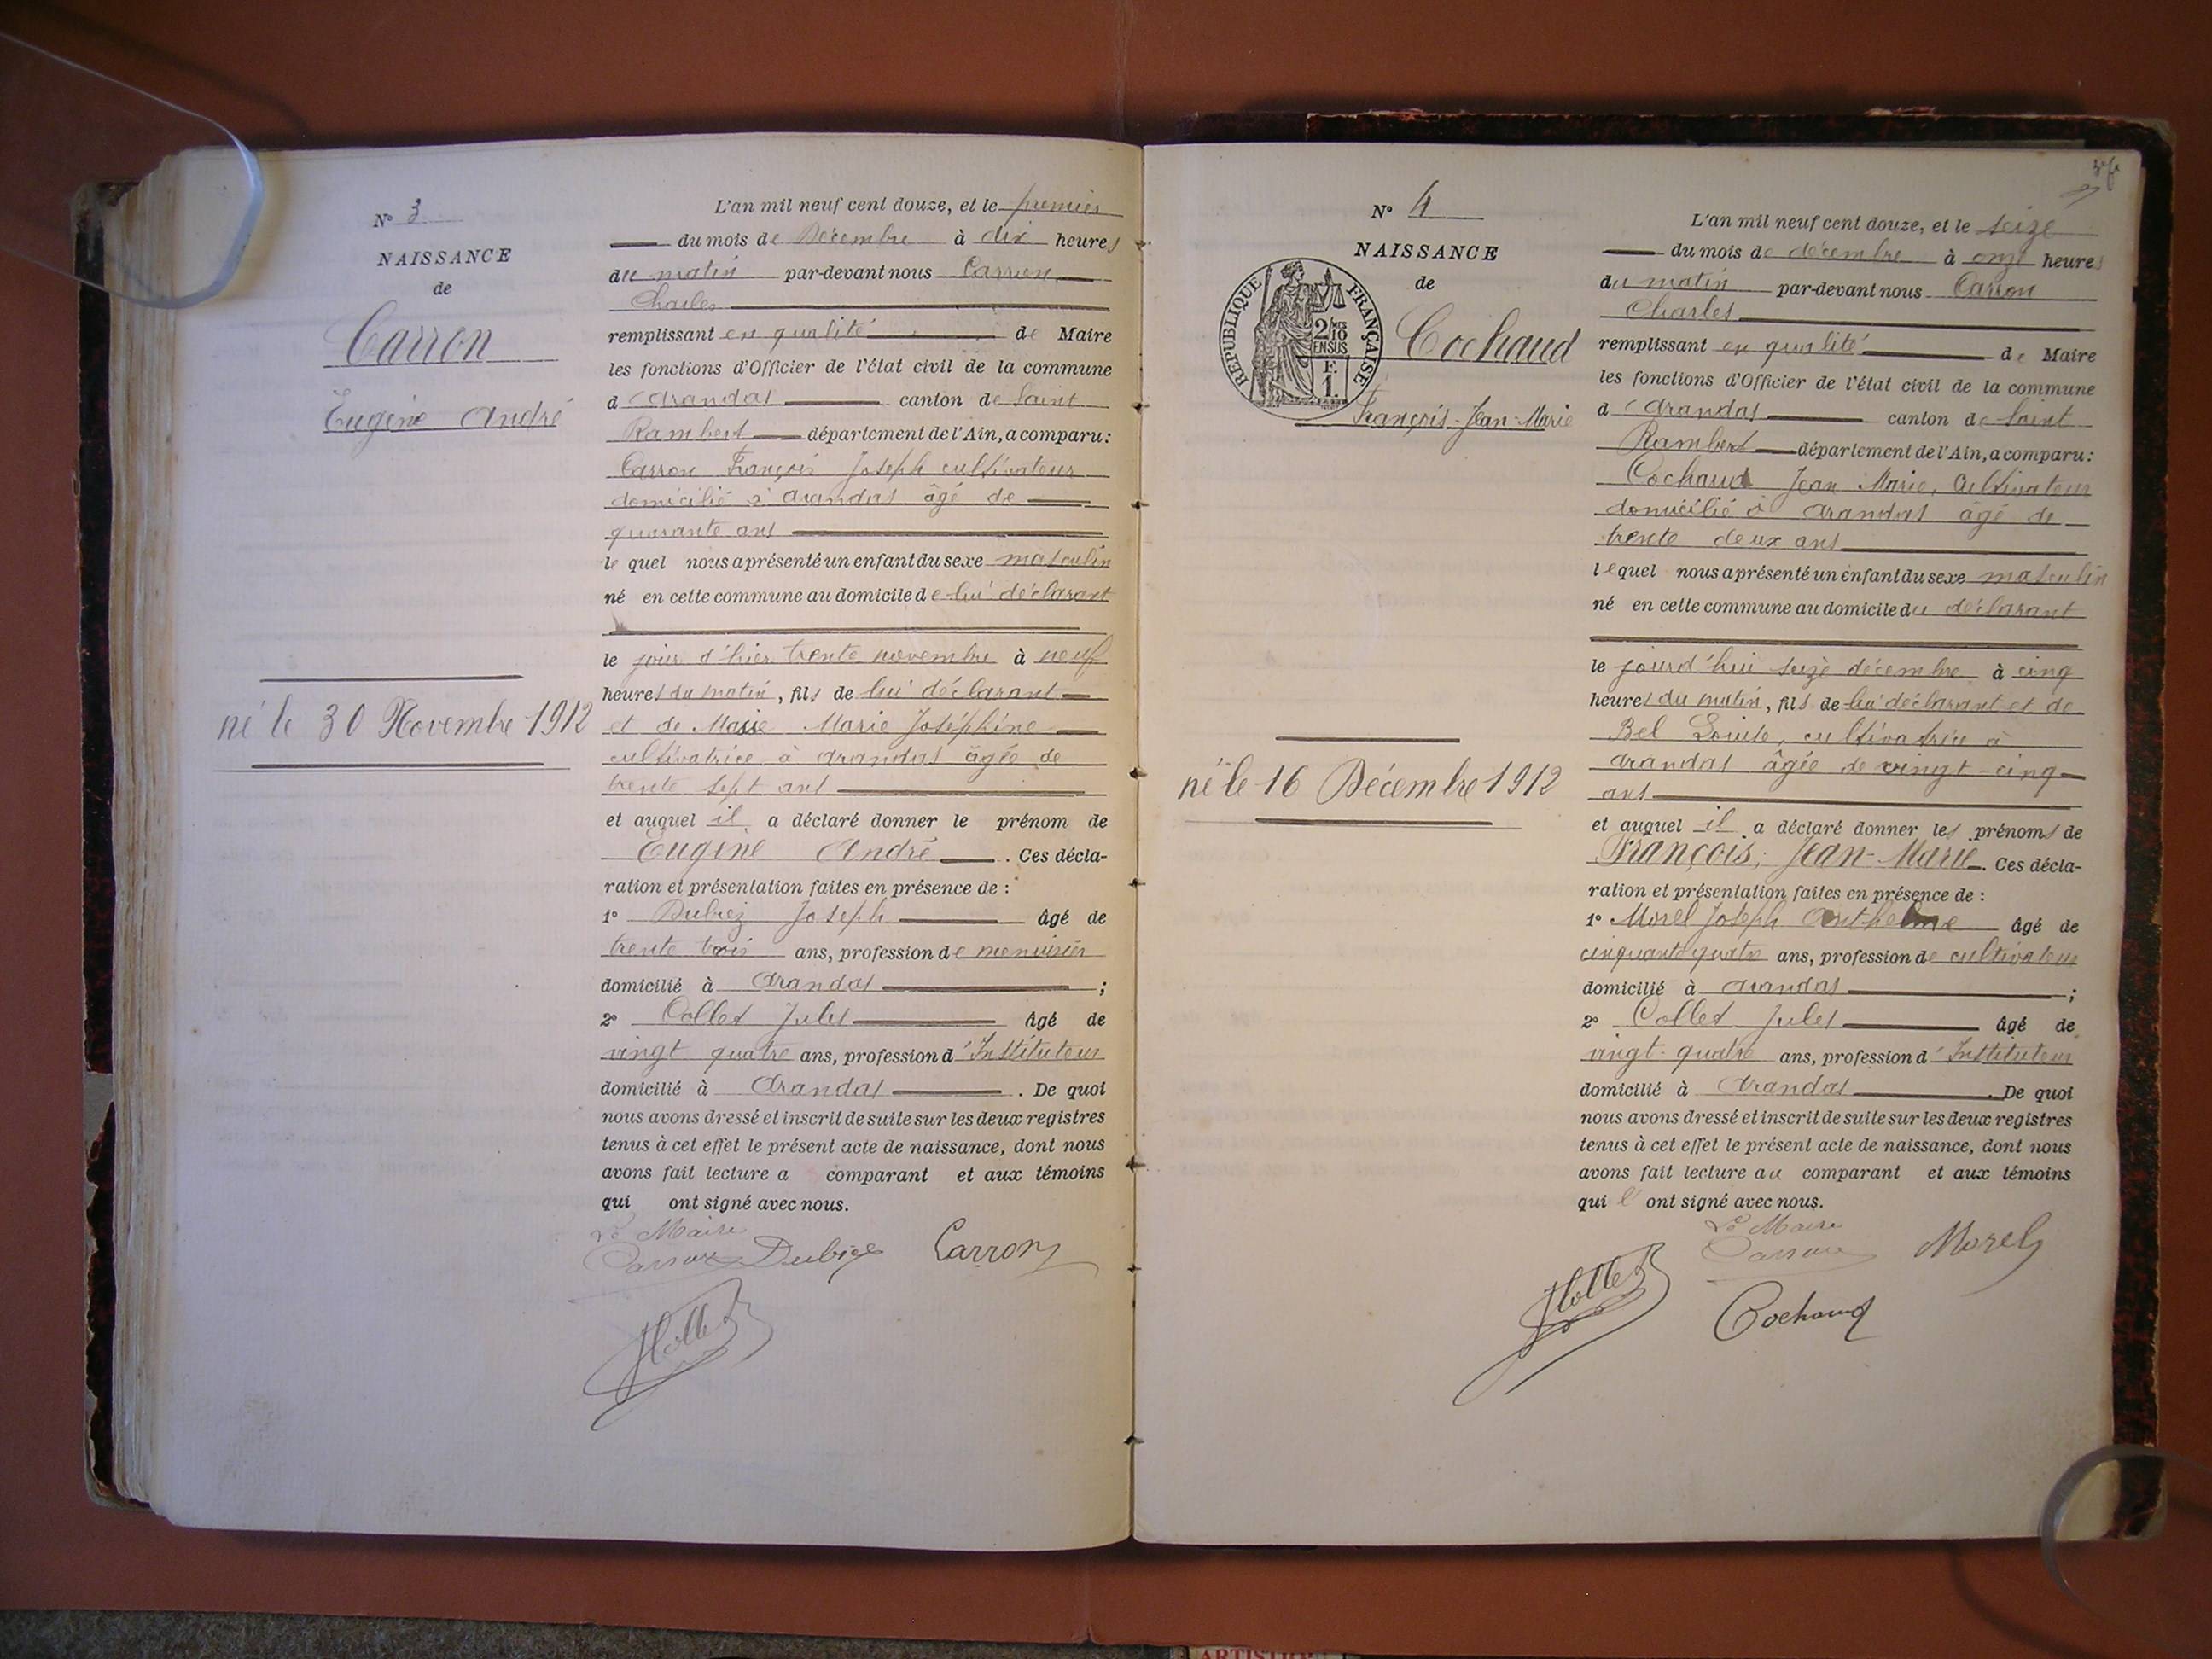 N° 3
NAISSANCE
de
Carron
Eugène André
né le 30 Novembre 1912
L'an mil neuf cent douze, et le premier
du mois de Décembre à dix heures
du matin par-devant nous Carron
Charles
remplissant en qualité de Maire
les fonctions d'Officier de l'état civil de la commune
d'Arandas canton de Saint
Rambert département de l'Ain, a comparu:
Carron François Joseph cultivateur
domicilié à Arandas âgé de
quarante ans
le quel nous a présenté un enfant du sexe masculin
né en cette commune au domicile de lui déclarant
le jour d'hier trente novembre à neuf
heures du matin, fils de lui déclarant
et de Marie Joséphine
cultivatrice à Arandas âgée de
trente sept ans
et auquel il a déclaré donner le prénom de
Eugène André. Ces décla-
ration et présentation faites en présence de :
1° Joseph âgé de
trente trois ans, profession de menuisier
domicilié à Arandas ;
2° Collet Jules âgé de
vingt quatre ans, profession d'Instituteur
domicilié à Arandas. De quoi
nous avons dressé et inscrit de suite sur les deux registres
tenus à cet effet le présent acte de naissance, dont nous
avons fait lecture a comparant et aux témoins
qui ont signé avec nous.
Le Maire
Carron
JCollet
N° 4
NAISSANCE
de
REPUBLIQUE FRANÇAISE
2/10
EN SUS
F.
1.
Cochaud
François-Jean-Marie
né le 16 Décembre 1912
L'an mil neuf cent douze, et le seize
du mois de décembre à onze heures
du matin par-devant nous Carron
Charles
remplissant en qualité de Maire
les fonctions d'Officier de l'état civil de la commune
d'Arandas canton de Saint
Rambert département de l'Ain, a comparu:
Cochaud Jean Marie, Cultivateur
domicilié à Arandas âgé de
trente deux ans
lequel nous a présenté un enfant du sexe masculin
né en cette commune au domicile du déclarant
le jourd'hui seize décembre à cinq
heures du matin, fils de lui déclarant et de
Bel Louise, cultivatrice à
Arandas âgée de vingt-cinq
ans
et auquel il a déclaré donner les prénoms de
François, Jean-Marie. Ces décla-
ration et présentation faites en présence de :
1° Morel Joseph Anthelme âgé de
cinquante quatre ans, profession de cultivateur
domicilié à Arandas ;
2° Collet Jules âgé de
vingt-quatre ans, profession d'Instituteur
domicilié à Arandas. De quoi
nous avons dressé et inscrit de suite sur les deux registres
tenus à cet effet le présent acte de naissance, dont nous
avons fait lecture au comparant et aux témoins
qui l'ont signé avec nous.
Le Maire
Carron Morel
JCollet
Cochaud